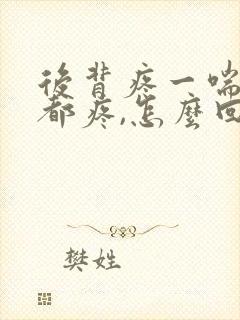 後背疼一喘
都疼,怎麼回
樊姓